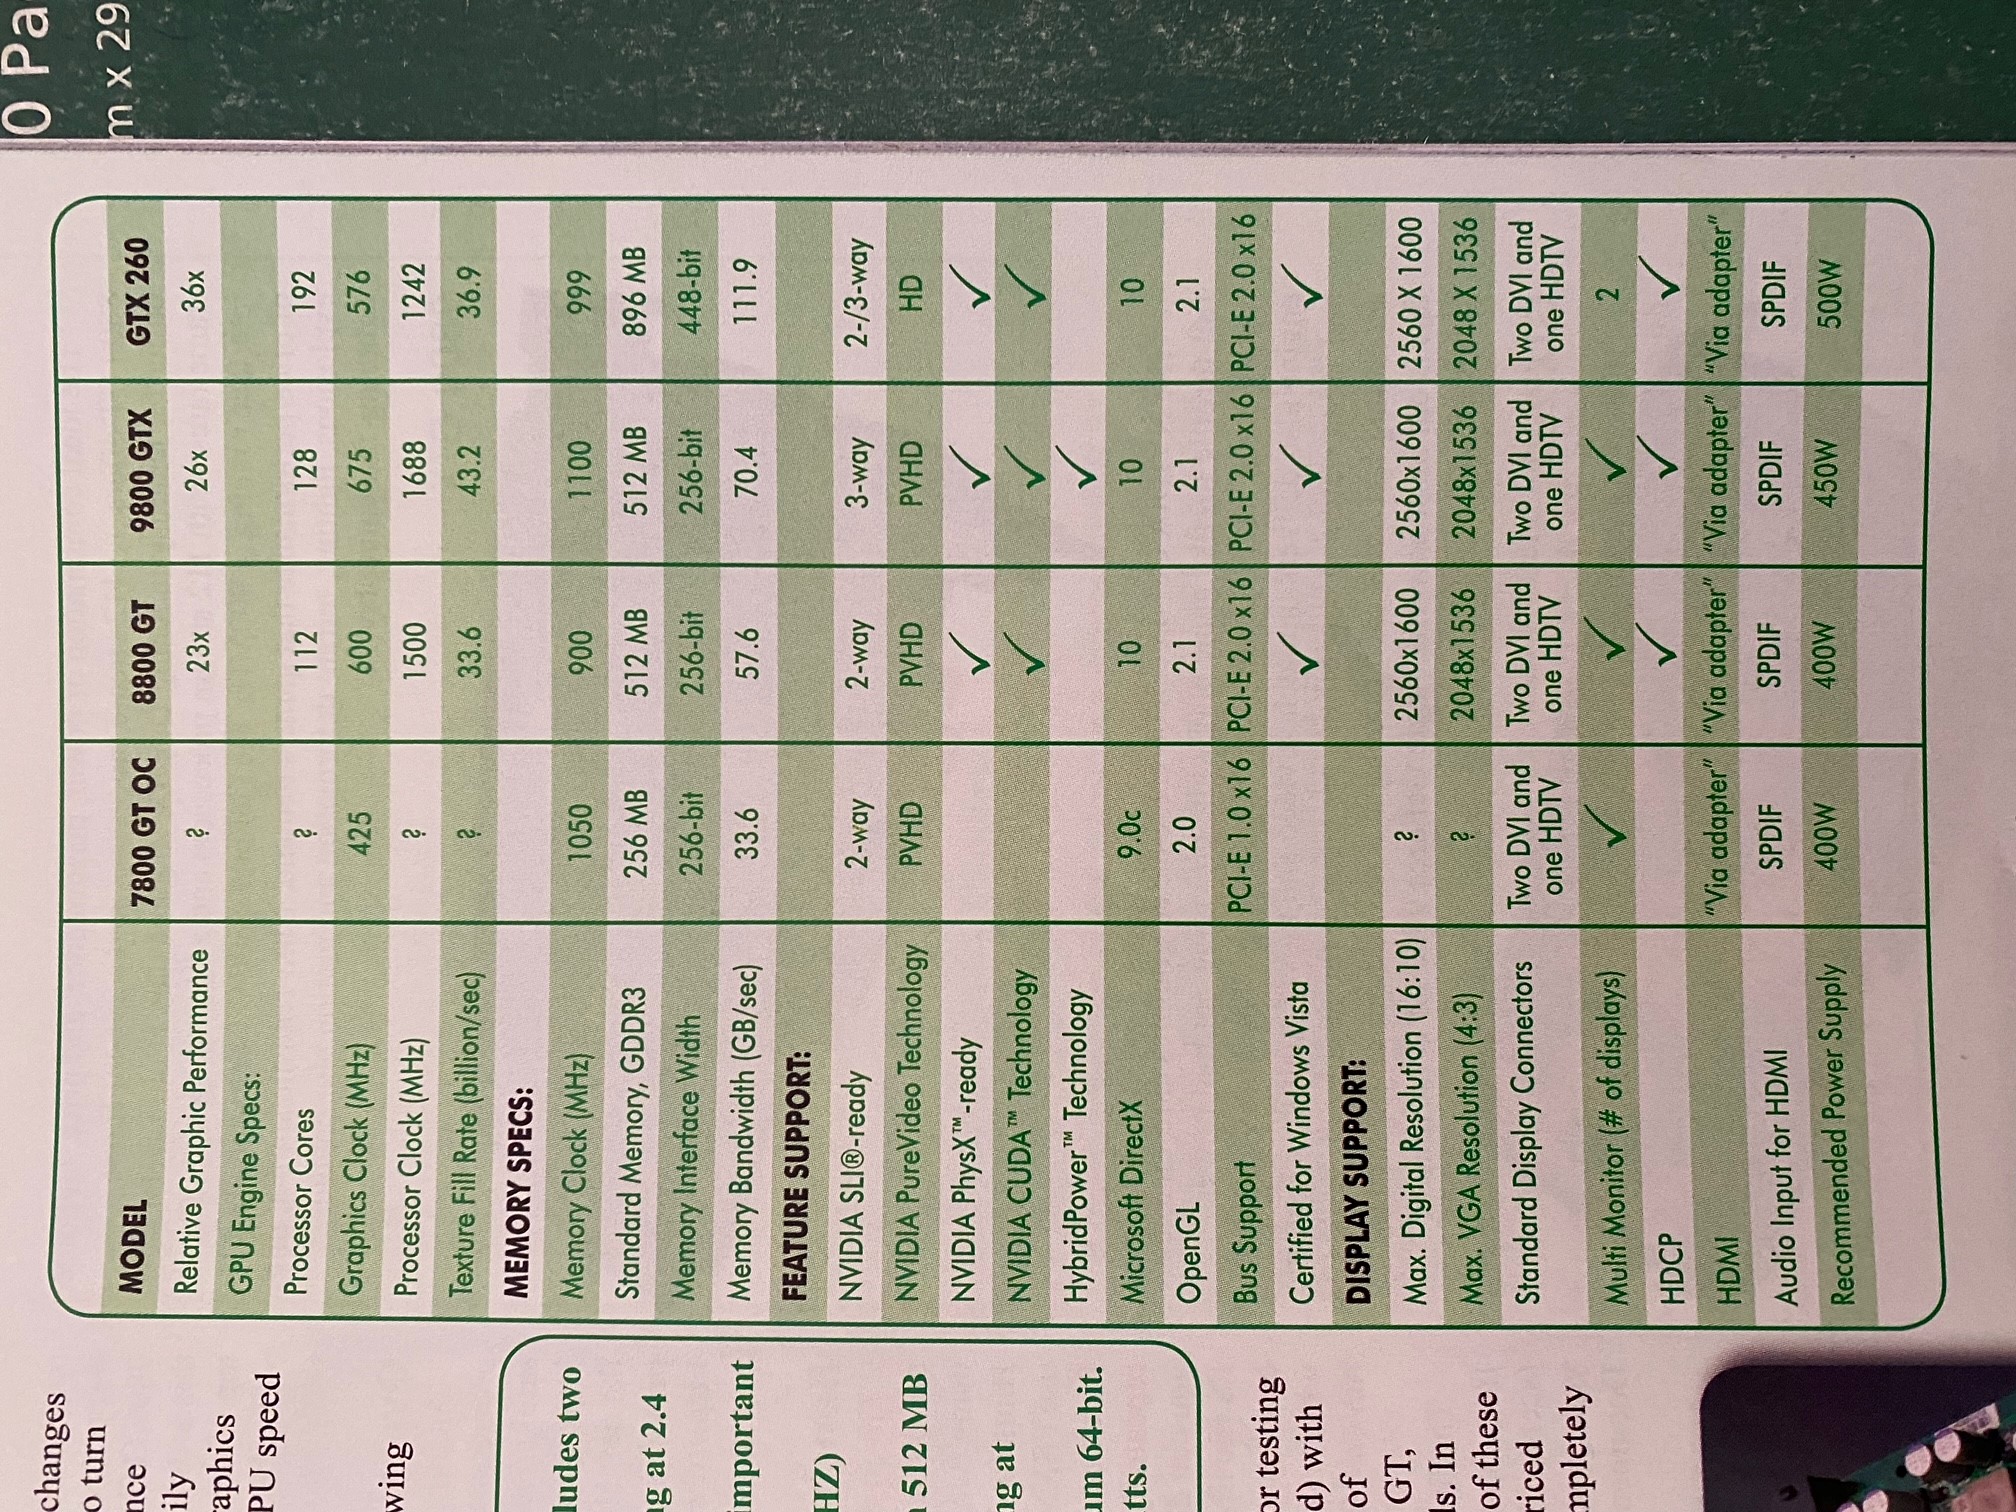 0 Pa
m x 29
MODEL 7800 GT OC 8800 GT 9800 GTX GTX 260
Relative Graphic Performance ? 23x 26x 36x
GPU Engine Specs:
Processor Cores ? 112 128 192
Graphics Clock (MHz) 425 600 675 576
Processor Clock (MHz) ? 1500 1688 1242
Texture Fill Rate (billion/sec) ? 33.6 43.2 36.9
MEMORY SPECS:
Memory Clock (MHz) 1050 900 1100 999
Standard Memory, GDDR3 256 MB 512 MB 512 MB 896 MB
Memory Interface Width 256-bit 256-bit 256-bit 448-bit
Memory Bandwidth (GB/sec) 33.6 57.6 70.4 111.9
FEATURE SUPPORT:
NVIDIA SLI®-ready 2-way 2-way 3-way 2-/3-way
NVIDIA PureVideo Technology PVHD PVHD PVHD HD
NVIDIA PhysX™-ready ✓ ✓ ✓
NVIDIA CUDA™ Technology ✓ ✓ ✓
HybridPower™ Technology ✓
Microsoft DirectX 9.0c 10 10 10
OpenGL 2.0 2.1 2.1 2.1
Bus Support PCI-E 1.0 x16 PCI-E 2.0 x16 PCI-E 2.0 x16 PCI-E 2.0 x16
Certified for Windows Vista ✓ ✓ ✓
DISPLAY SUPPORT:
Max. Digital Resolution (16:10) ? 2560x1600 2560x1600 2560 X 1600
Max. VGA Resolution (4:3) ? 2048x1536 2048x1536 2048 X 1536
Standard Display Connectors Two DVI and Two DVI and Two DVI and Two DVI and
one HDTV one HDTV one HDTV one HDTV
Multi Monitor (# of displays) ✓ ✓ ✓ 2
HDCP ✓ ✓ ✓
HDMI "Via adapter" "Via adapter" "Via adapter" "Via adapter"
Audio Input for HDMI SPDIF SPDIF SPDIF SPDIF
Recommended Power Supply 400W 400W 450W 500W
changes
o turn
nce
ily
raphics
PU speed
wing
ludes two
ng at 2.4
mportant
HZ)
n 512 MB
ng at
um 64-bit.
tts.
or testing
d) with
of
GT,
ls. In
of these
riced
mpletely